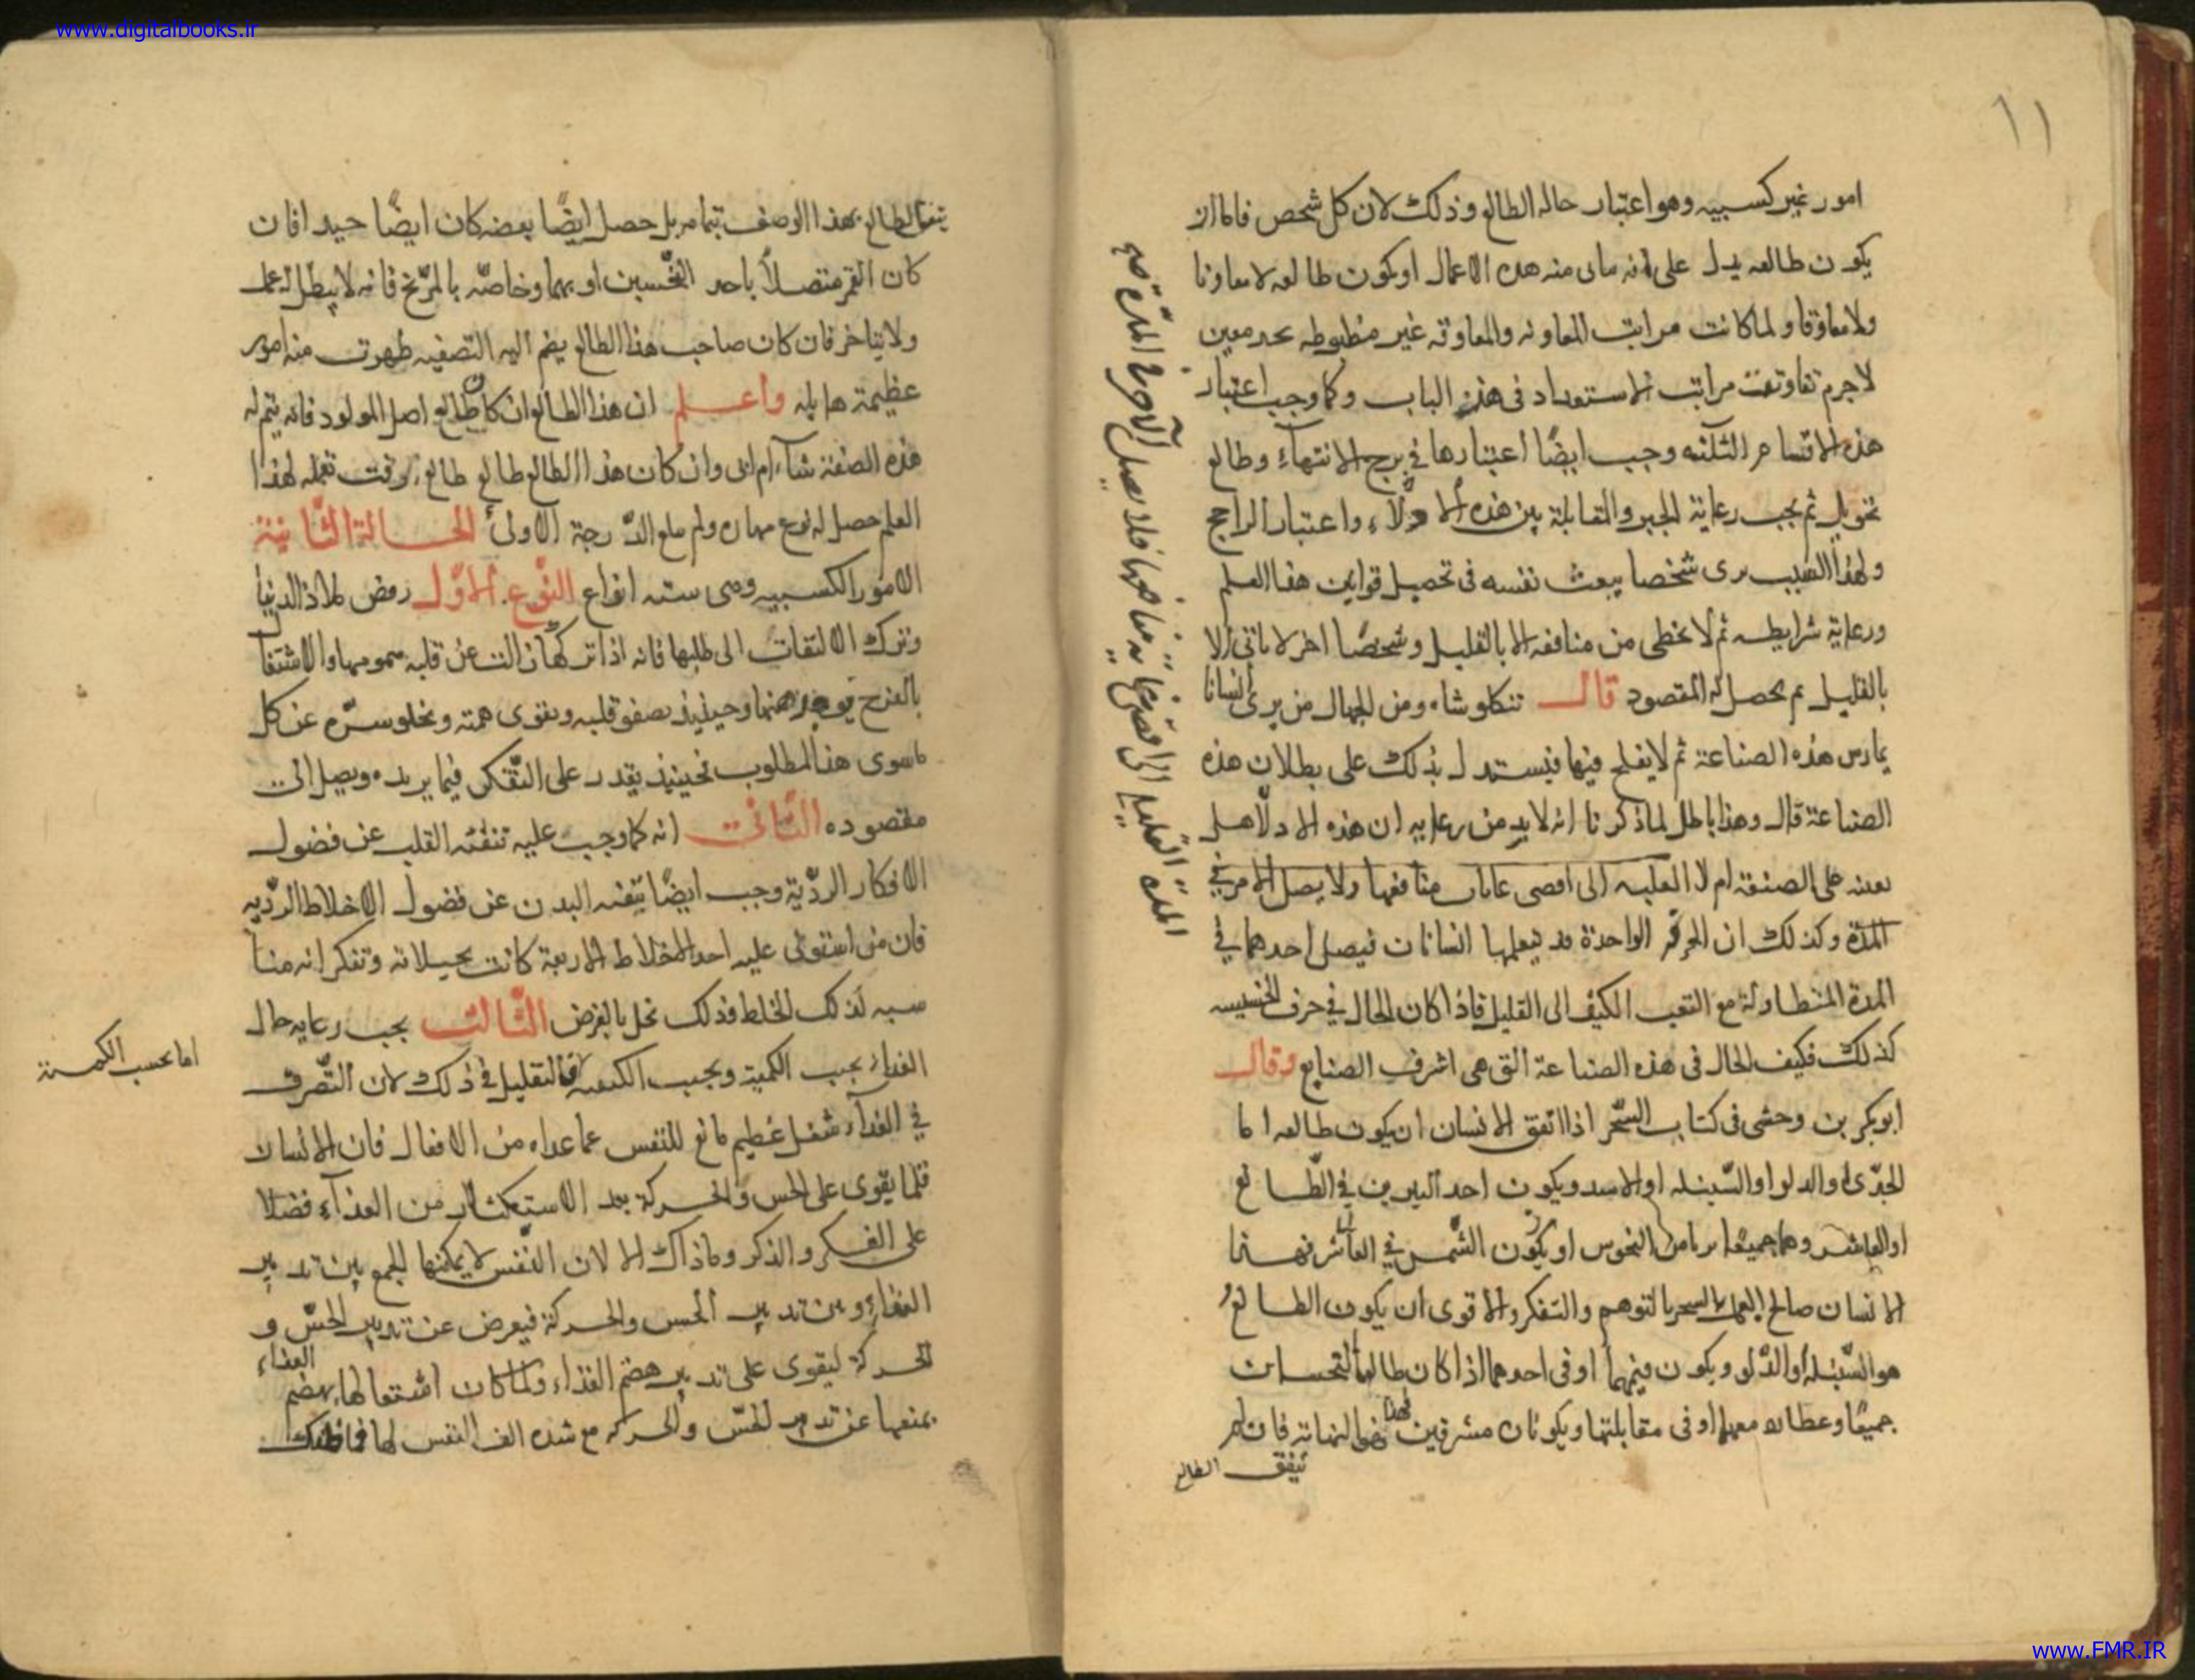 www.digitalbooks.ir
١١
امور غير كسبيه وهو اعتبار حاله الطالع وذلك لان كل شخص فاما ان
يكون طالعه يدل على انه ياتى منه هذه الاعمال او يكون طالعه لا معاونا
ولا معاوقا ولما كانت مراتب المعاونه والمعاوقه غير مظبوطه بحد معين
لاجرم تفاوتت مراتب الاستعداد فى هذا الباب وكما وجب اعتبار
هذه الاقسام الثلثه وجب ايضًا اعتبارها في برج الانتهاء وطالع
تحويل ثم يجب رعاية الجبر والمقابلة بين هذه الادلاء واعتبار الراجح
ولهذا السبب يرى شخصا يبعث نفسه فى تحصيل قوانين هذا العلم
ورعاية شرايطه ثم لا يحظى من منافعه الا بالقليل وشخصًا اخر لا ياتى الا
بالقليل ثم يحصل له المقصود قال تنكلوشاه ومن الجهال من يرى انسانا
يمارس هذه الصناعة ثم لا يفلح فيها فيستدل بذلك على بطلان هذه
الصناعة قال وهذا باطل لما ذكرنا انه لابد من رعايه ان هذه الادلا هل
على الصنعة ام لا الى اقصى منافعها ولا يصل الامر في
المدّة وكذلك ان الحرفه الواحدة قد يتعلمها انسانان فيصل احدهما في
المدة المتطاولة مع التعب الكثيف الى القليل فاذا كان الحال في حرف الخسيسه
كذلك فكيف الحال فى هذه الصناعة التى هى اشرف الصنايع وقال
ابو بكر بن وحشى فى كتاب السّحر اذا اتفق الانسان ان يكون طالعه اما
الجدّى او الدلو او السّنبله او الاسد ويكون احد النيرين في الطّالع
او العاشر وهما جميعًا من النحوس او يكون الشّمس في العاشر فهذا
الانسان صالح لعمل السحر بالتوهم والتفكر والاقوى ان يكون الطالعُ
هو السّنبله او الدّلو ويكون فيهما او فى احدهما اذا كان طالعا النحسان
جميعًا وعطارد معهما او فى مقابلتهما ويكونان مشرقين فهذا النهاية فان لم
يتفق الطالع
يتفق الطالع بهذا الوصف بتمامه بل حصل ايضًا بعضه كان ايضًا جيدا فان
كان القمر متصلاً باحد النّحسين او بهما وخاصّه بالمرّيخ فانه لا يبطل له عمل
ولا يتاخر فان كان صاحب هذا الطالع يضم اليه التصفيه ظهرت منه امور
عظيمة هايله واعلم ان هذا الطالع ان كان طالع اصل المولود فانه يتم له
هذه الصنعة شآء ام ابى وان كان هذا الطالع طالع وقت تعلمه لهذا
العلم حصل له نوع مهاره ولم يبلغ الدّرجة الاولى الحالة الثّانية
الامور الكسبيه وهى سته انواع النّوع الاوّل رفض ملاذ الدنيا
وترك الالتفات الى طلبها فانه اذا تركها زالت عن قلبه همومها والاشتغا
بالفرح وحينئذ يصفو قلبه ويقوى همته ويخلو سرّه عن كل
ماسوى هذا المطلوب فحينئذ يقدر على التّفكر فيما يريده ويصل الى
مقصوده الثّانى انه كما وجب عليه تنقيه القلب عن فضول
الافكار الردّية وجب ايضًا تنقيه البدن عن فضول الاخلاط الردّيه
فان من استولى عليه احد الاخلاط الاربعة كانت تخيلاته وتفكراته مناسبه
لذلك الخلط فذلك مخل بالغرض الثّالث يجب رعايه حال
الغذاء بحسب الكمية وبحسب الكيفيه فالتقليل فى ذلك لان التّصرف
في الغذآء شغل عظيم مانع للنفس عما عداه من الافعال فان الانسان
قلما يقوى على الحس والحركة بعد الاستكثار من الغذآء فضلا
على الفكر والذكر وماذاك الا لان النّفس لا يمكنها الجمع بين تدبير
الغذاء وبين تدبير الحس والحركة فيعرض عن تدبير الحسّ و
الحركة ليقوى على تدبير هضم الغذاء ولما كان اشتغالها بهضم الغذاء
يمنعها عن تدبير الحسّ والحركه مع شده الف النفس لها
اما بحسب الكمية
www.FMR.IR